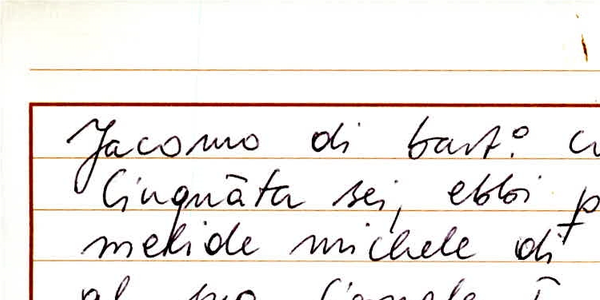 Jacomo di bart.o
Cinquāta sei, ebbi p
melide michele di
al